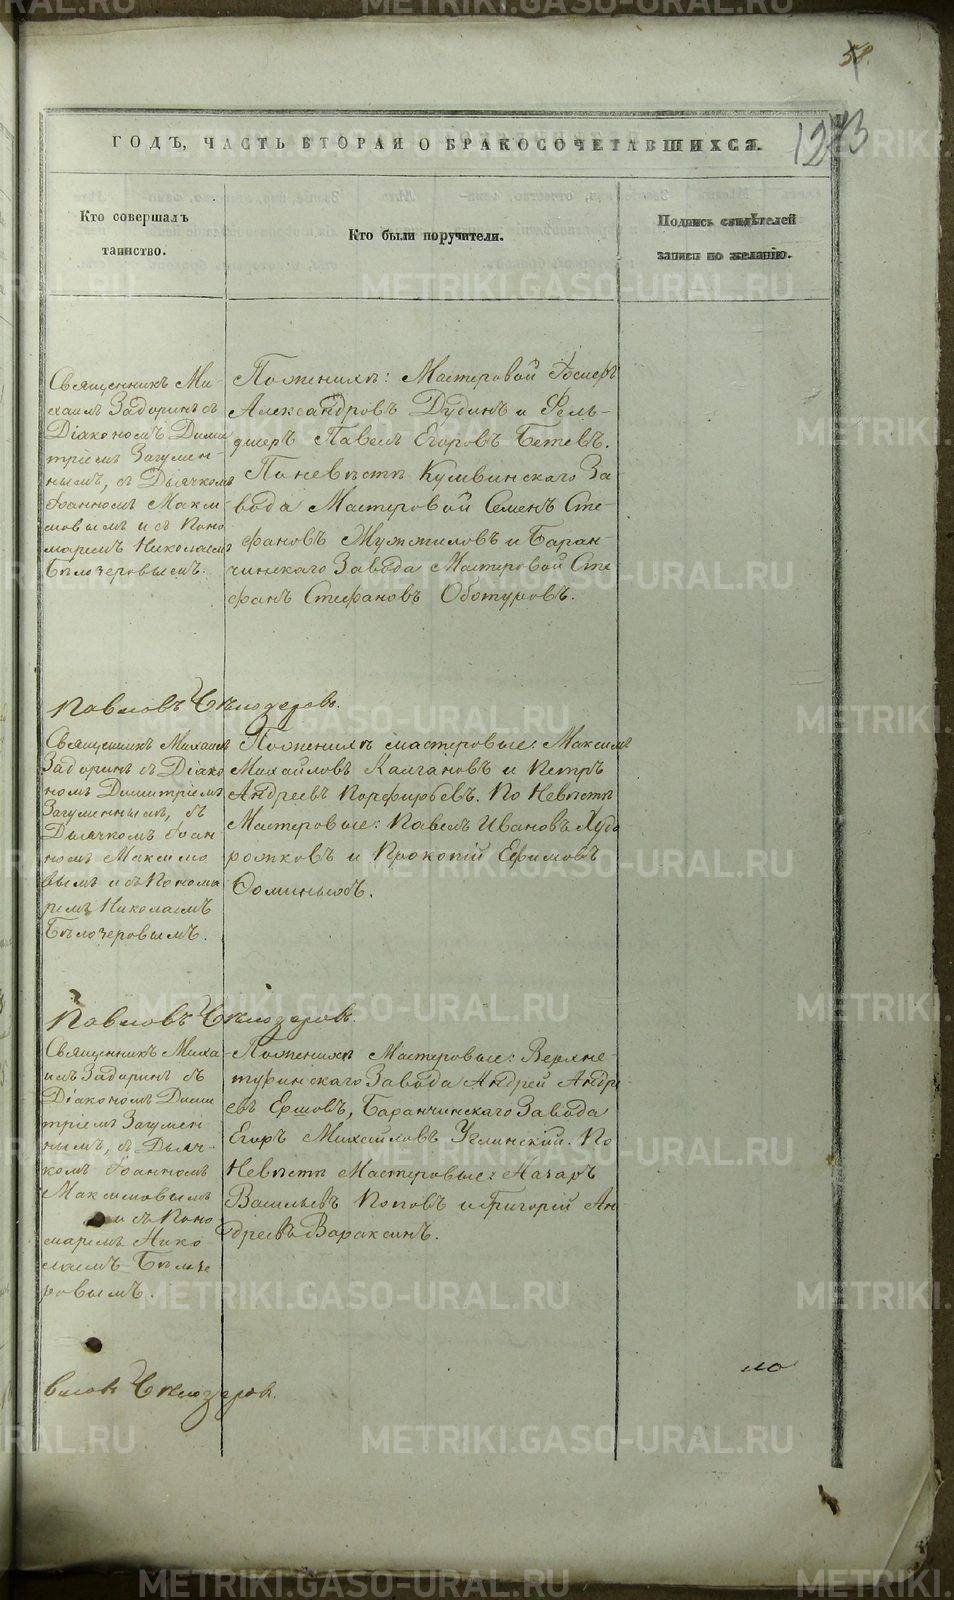 58.
1273
ГОДЪ, ЧАСТЬ ВТОРАЯ О БРАКОСОЧЕТАВШИХСЯ.
Кто совершалъ
таинство.
Кто были поручители.
Подпись свидѣтелей
записи по желанію.
Священникъ Ми-
хаилъ Задоринъ съ
Діакономъ Дими
тріемъ Загумен-
нымъ, съ Дьячкомъ
Іоанномъ Макси
мовымъ и съ Поно
маремъ Николаемъ
Бѣлозеровымъ.
Пожениxѣ: Мастеровой
Александровъ Дудинъ и Фель-
дшеръ Павелъ Егоровъ Бетевъ.
Поневѣстѣ Кушвинскаго За
вода Мастеровой Семенъ Сте-
фановъ и Баран-
чинскаго Завода Мастеровой Сте
фанъ Стефановъ Оботуровъ.
Павловъ Бѣлозеровъ.
Священникъ Михаилъ
Задоринъ съ Діако
номъ Димитріемъ
Загуменнымъ, съ
Дьячкомъ Іоан
номъ Максимо
вымъ и съ Понома
ремъ Николаемъ
Бѣлозеровымъ.
Поженихѣ мастеровые: Максимъ
Михайловъ Калгановъ и Петръ
Андреевъ Порфирьевъ. По Невѣстѣ
Мастеровые: Павелъ Ивановъ Худо
рожковъ и Прокопій Ефимовъ
Ѳоминыхъ.
Павловъ Бѣлозеровъ.
Священникъ Миха
илъ Задоринъ съ
Діакономъ Дими
тріемъ Загумен
нымъ, съ Дьяч-
комъ Іоанномъ
Максимовымъ
и съ Поно
маремъ Нико
лаемъ Бѣлозе
ровымъ.
Поженихѣ Мастеровые: Верхне-
туринскаго Завода Андрей Андре
евъ Ершовъ, Баранчинскаго Завода
Егоръ Михайловъ Углинскій. По
Невѣстѣ Мастеровые: Назаръ
Васильевъ Поповъ и Григорій Ан
дреевъ Вараксинъ.
вловъ Бѣлозеровъ.
METRIKI.GASO-URAL.RU